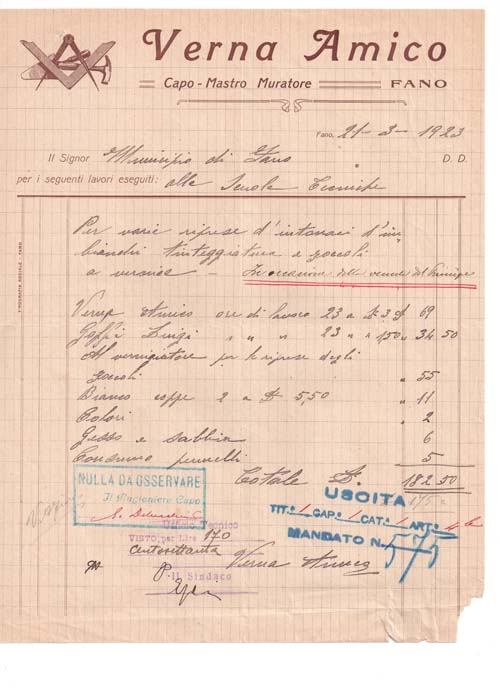 Verna Amico
Capo-Mastro Muratore
FANO
Fano, 21-3-1923
Il Signor Municipio di Fano D. D.
per i seguenti lavori eseguiti: alle Scuole Tecniche
Per varie riprese d'intonaci d'im
bianchi tinteggiatura e zoccoli
a vernice - In occasione della venuta del Principe
Verna Amico ore di lavoro 23 a £ 3 £ 69
Goffi Luigi " " " 23 " " 1,50 " 34 50
Al vernigiatore per le riprese degli
zoccoli " 55
Bianco coppe 2 a £ 5,50 " 11
Colori " 2
Gesso e sabbia 6
Consumo pennelli 5
Totale £. 182.50
NULLA DA OSSERVARE
Il Ragioniere Capo
USCITA
TIT. 1 CAP. 1 CAT. 1 ART. 4
MANDATO N. 575
Ufficio Tecnico
VISTO, per Lire 170
centosettanta
Verna Amico
P. Il Sindaco
TIPOGRAFIA SOCIALE - FANO